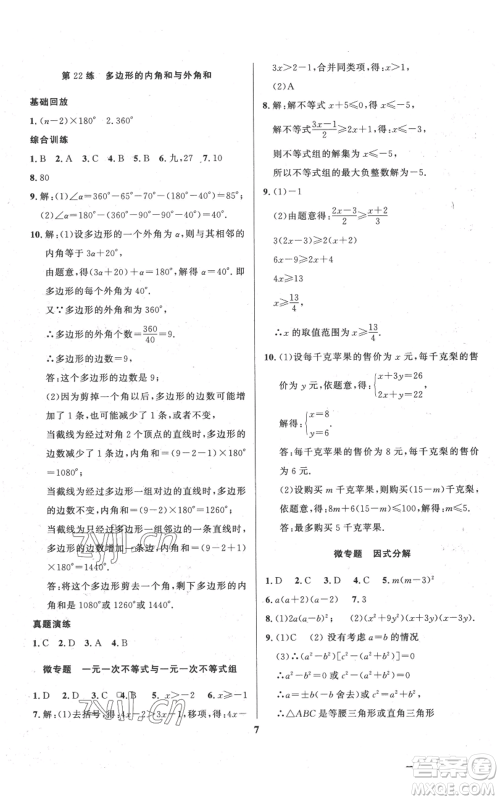 第22练　多边形的内角和与外角和
基础回放
1. (n-2)×180°　2. 360°
综合训练
1. B　2. A　3. C　4. A　5. B　6. 九, 27　7. 10
8. 80
9. 解: (1)∠α=360°-90°-70°-140°=60°.
(2)∠α=360°-90°-90°-40°=140°.
10. 解: (1)设多边形的一个外角为α, 则与其相邻的
内角等于3α+20°,
由题意, 得(3α+20°)+α=180°, 解得α=40°.
即多边形的每个外角为40°.
又∵多边形的外角和为360°,
∴多边形的外角个数=360/40=9.
∴多边形的边数=9,
答: 这个多边形的边数是9;
(2)因为剪掉一个角以后, 多边形的边数可能
增加了1条, 也可能减少了1条, 或者不变,
当截线为经过对角2个顶点的直线时, 多边形
的边数减少了1条, 内角和=(9-2-1)×180°
=1080°;
当截线为经过多边形一组对边的直线时, 多
边形的边数不变, 内角和=(9-2)×180°=
1260°;
当截线为只经过多边形一组邻边的一条直线
时, 多边形的边数增加一条, 内角和=(9-2+
1)×180°=1440°.
答: 将这个多边形剪去一个角, 剩下多边形的
内角和是1080°或1260°或1440°.
真题演练
1. C　2. D　3. C　4. A
微专题　一元一次不等式与一元一次不等式组
1. D　2. A　3. B　4. C　5. x<-4　6. x≥-1
7. 解: (1)去括号, 得: 4x-2>3x-1, 移项, 得: 4x-
3x>2-1, 合并同类项, 得: x>1.
(2)A
8. 解: 解不等式x+5≤0, 得: x≤-5,
解不等式(3x-1)/2≥2x+1, 得: x≤-3,
则不等式组的解集为x≤-5.
所以不等式组的最大负整数解为-5.
9. (1)-1
(2)由题意得: (2x-3)/2≥(3-x)/3
3(2x-3)≥2(3-x)
6x-9≥6-2x
∴x的取值范围为x≥13/4.
10. (1)设每千克苹果的售价为x元, 每千克梨的售
价为y元, 依题意, 得: {x+3y=26
解得: {x=8, y=6.
答: 每千克苹果的售价为8元, 每千克梨的售价
为6元.
(2)设购买m千克苹果, 则购买(15-m)千克梨,
依题意, 得: 8m+6(15-m)≤100, 解得: m≤5.
答: 最多购买5千克苹果.
微专题　因式分解
1. D　2. D　3. C　4. B　5. m(m-3)²
9. (1)C　(2)没有考虑a=b的情况
∴△ABC是等腰三角形或直角三角形.
7